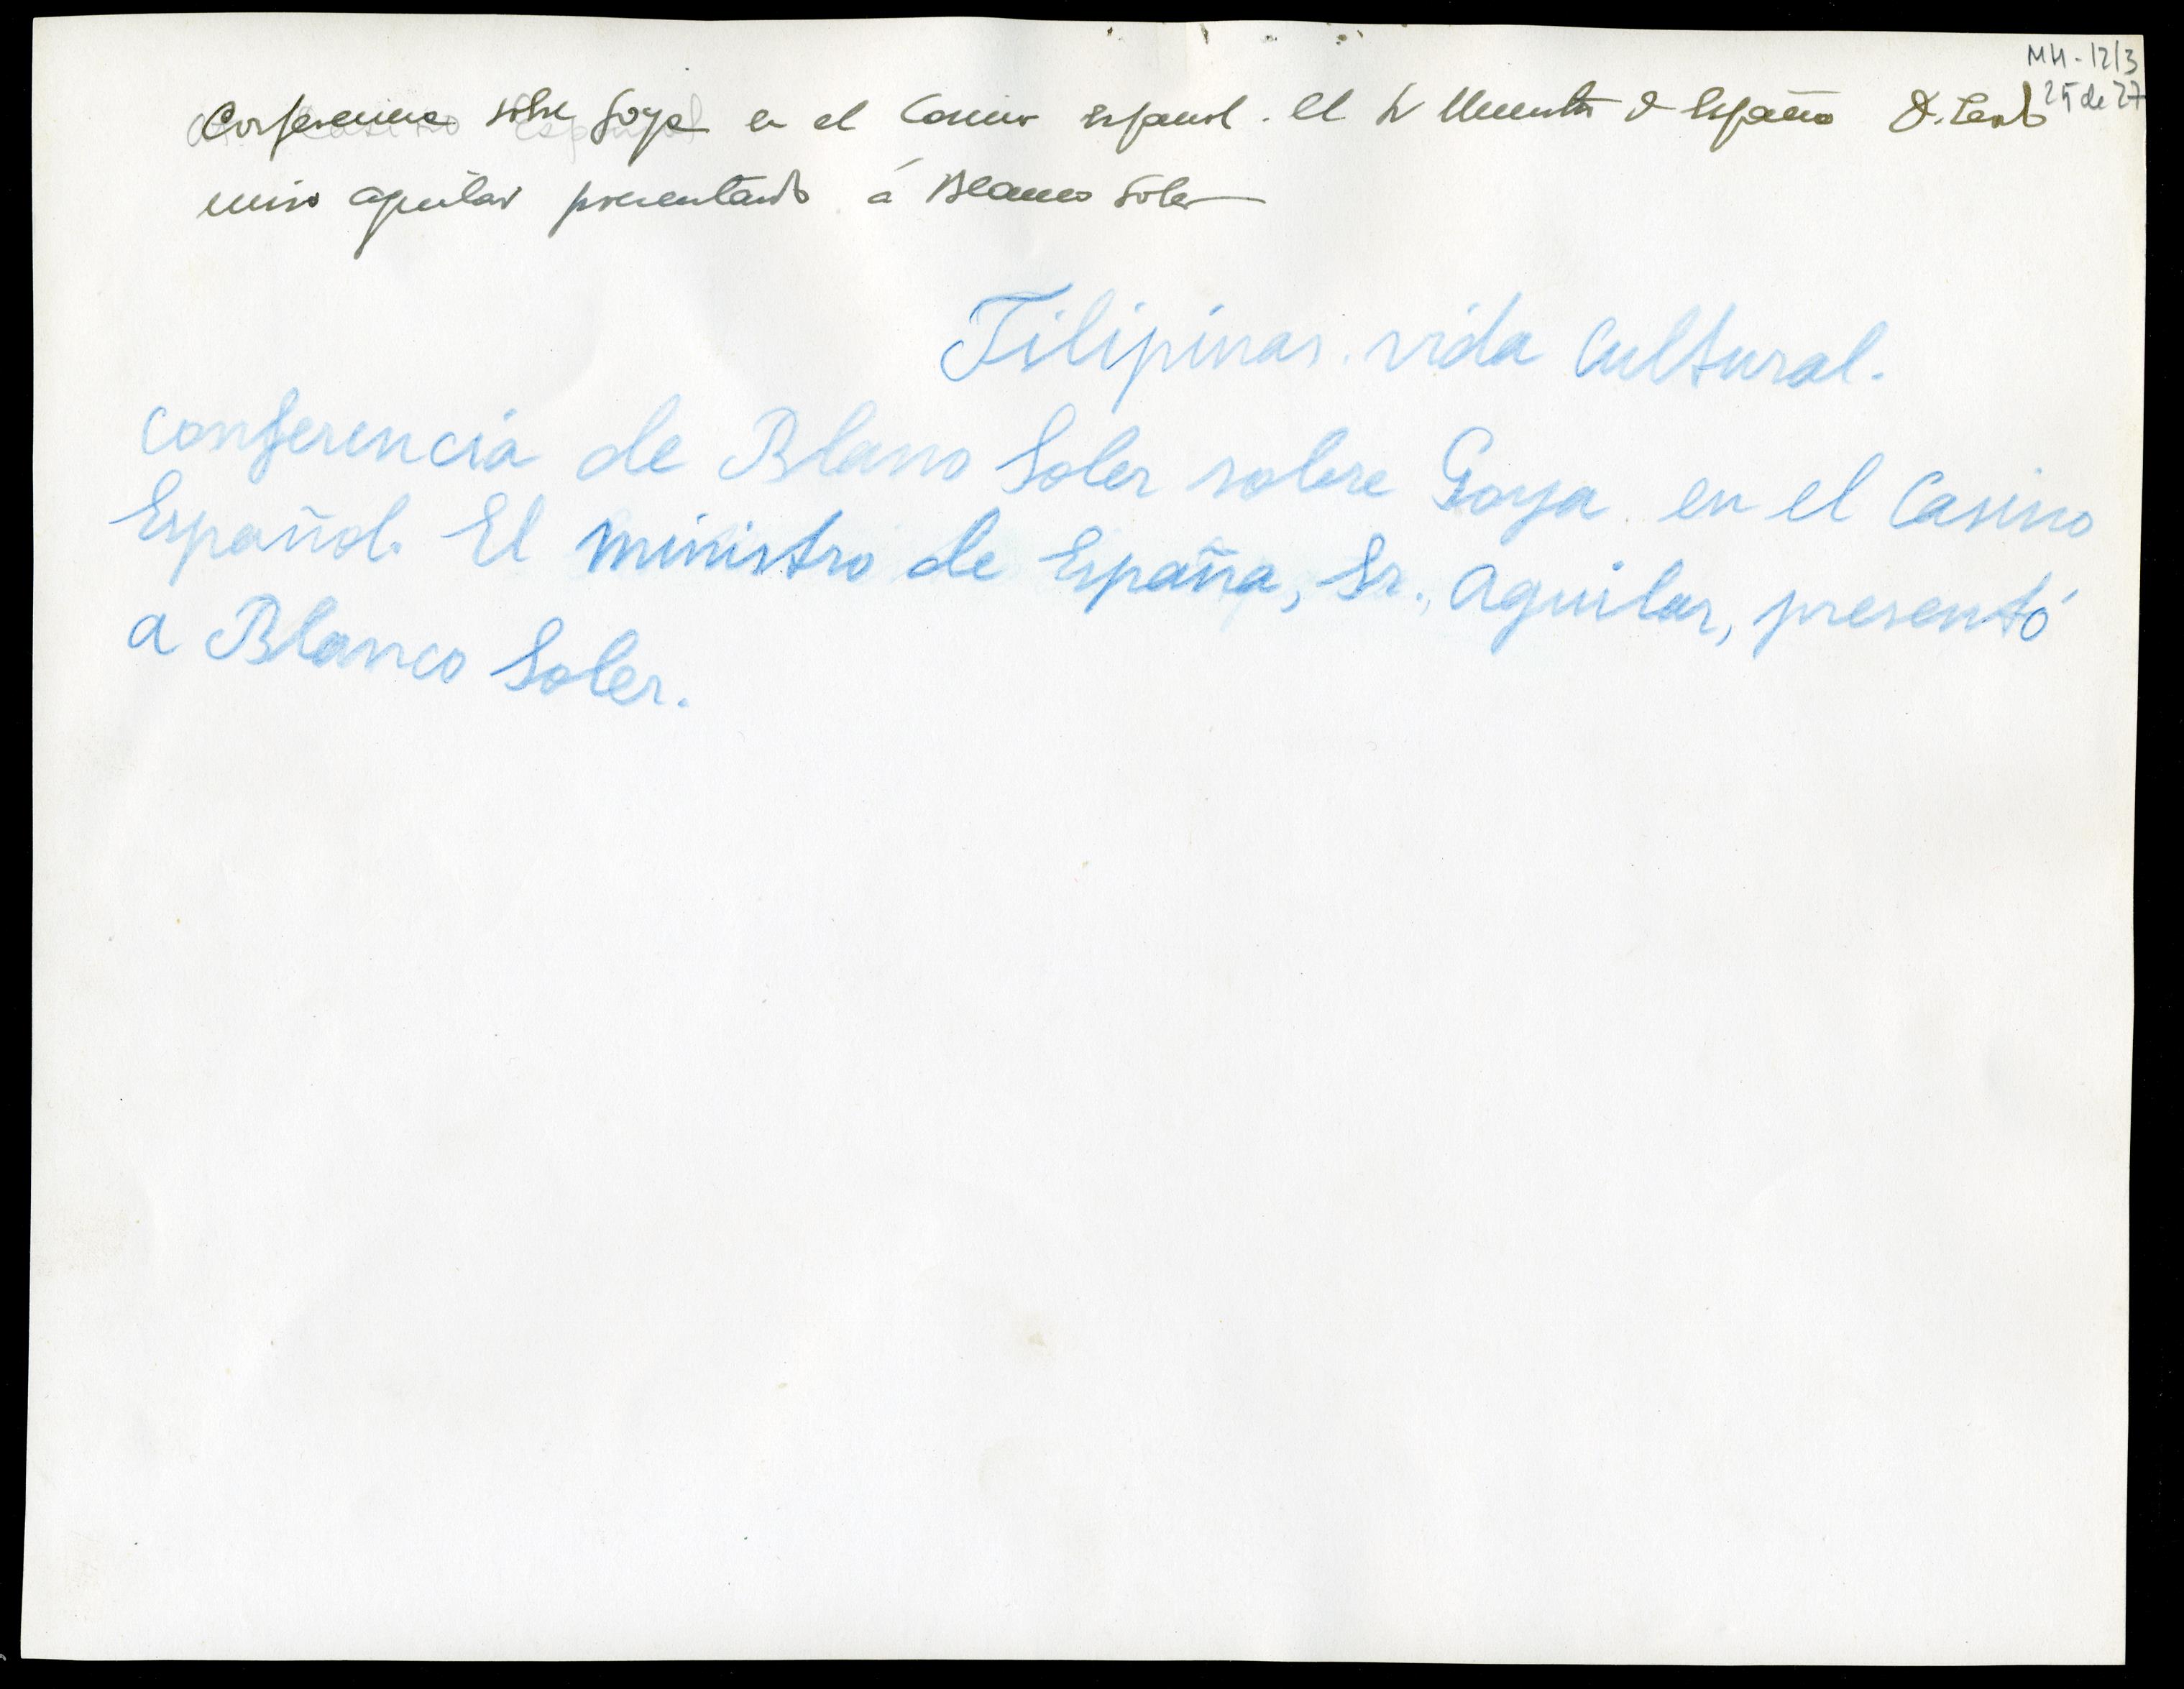 MH-12/3
25 de 27
Conferencia sobre Goya en el Casino Español. El Sr Ministro de España D.
Aguilar presentando á Blanco Soler
Filipinas. vida cultural.
conferencia de Blano Soler sobre Goya en el Casino
Español. El ministro de España, Sr. Aguilar, presentó
a Blanco Soler.